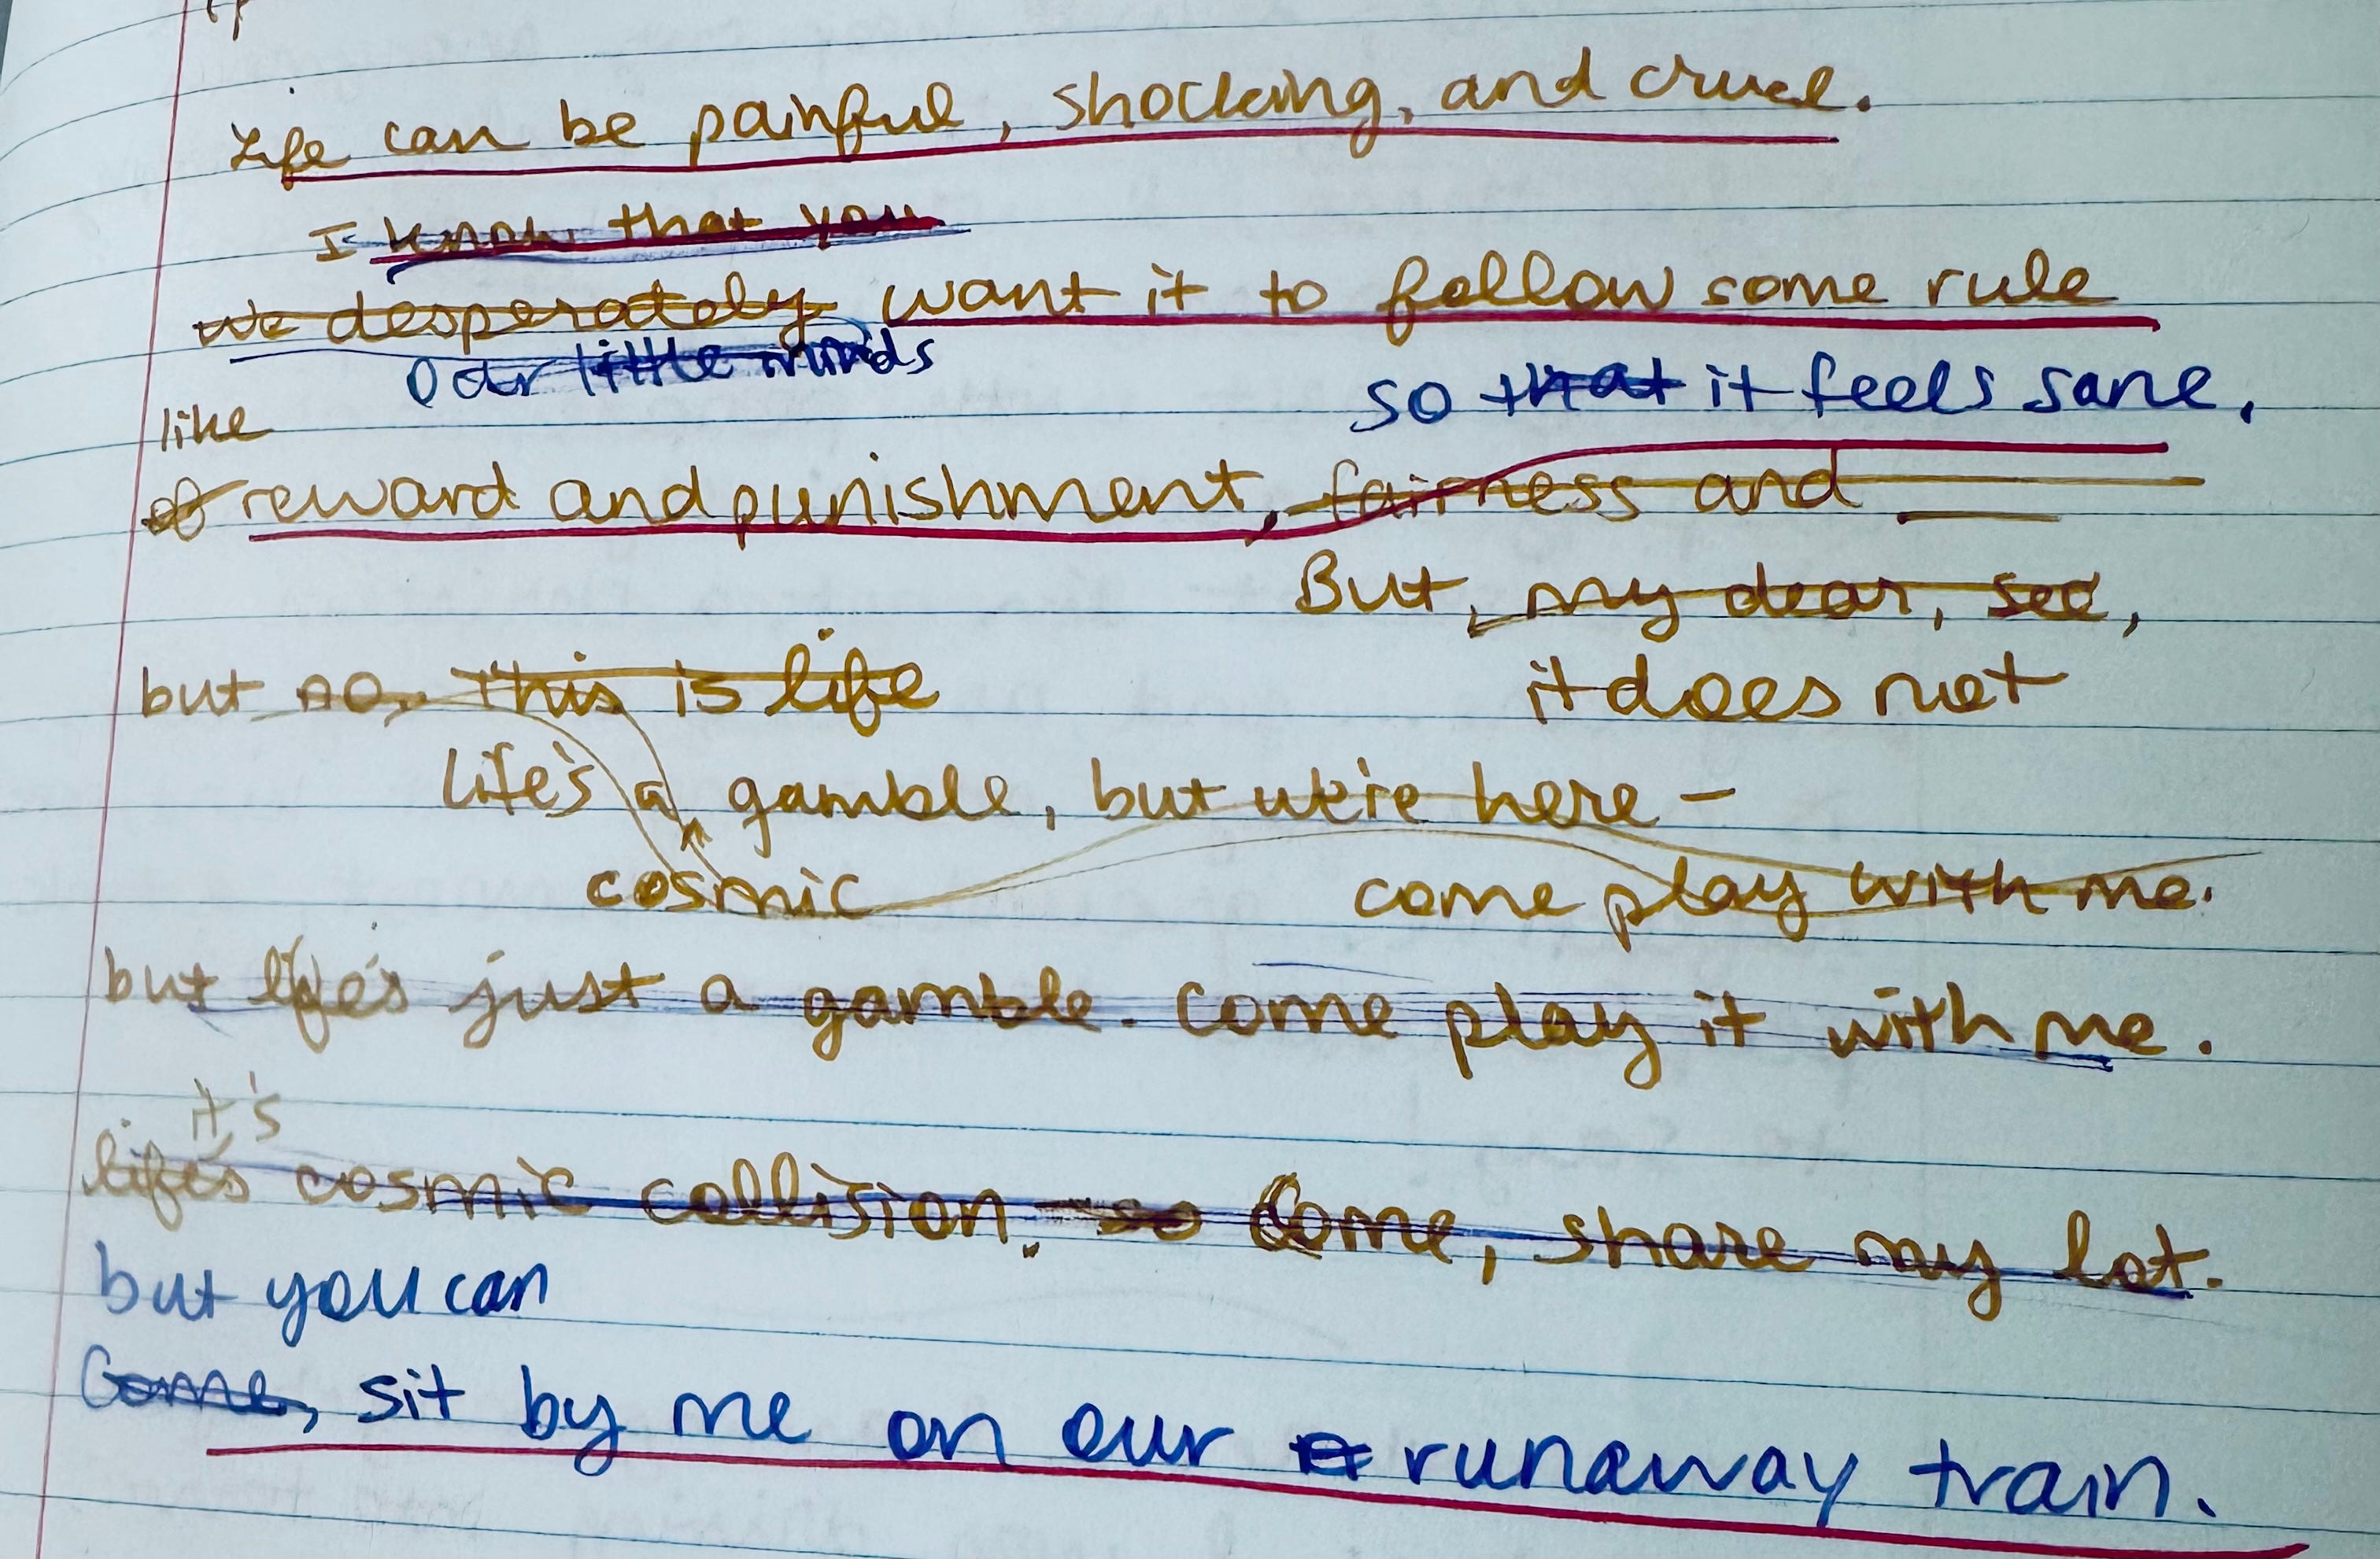 Life can be painful, shocking, and cruel.
I know that you
we desperately want it to follow some rule
Our little minds
so that it feels sane.
like
of reward and punishment, fairness and
But, my dear, see,
but no, this is life
it does not
Life's a gamble, but we're here –
cosmic
come play with me.
but life's just a gamble. Come play it with me.
it's
life's cosmic collision. so Come, share my lot.
but you can
Come, sit by me on our a runaway train.